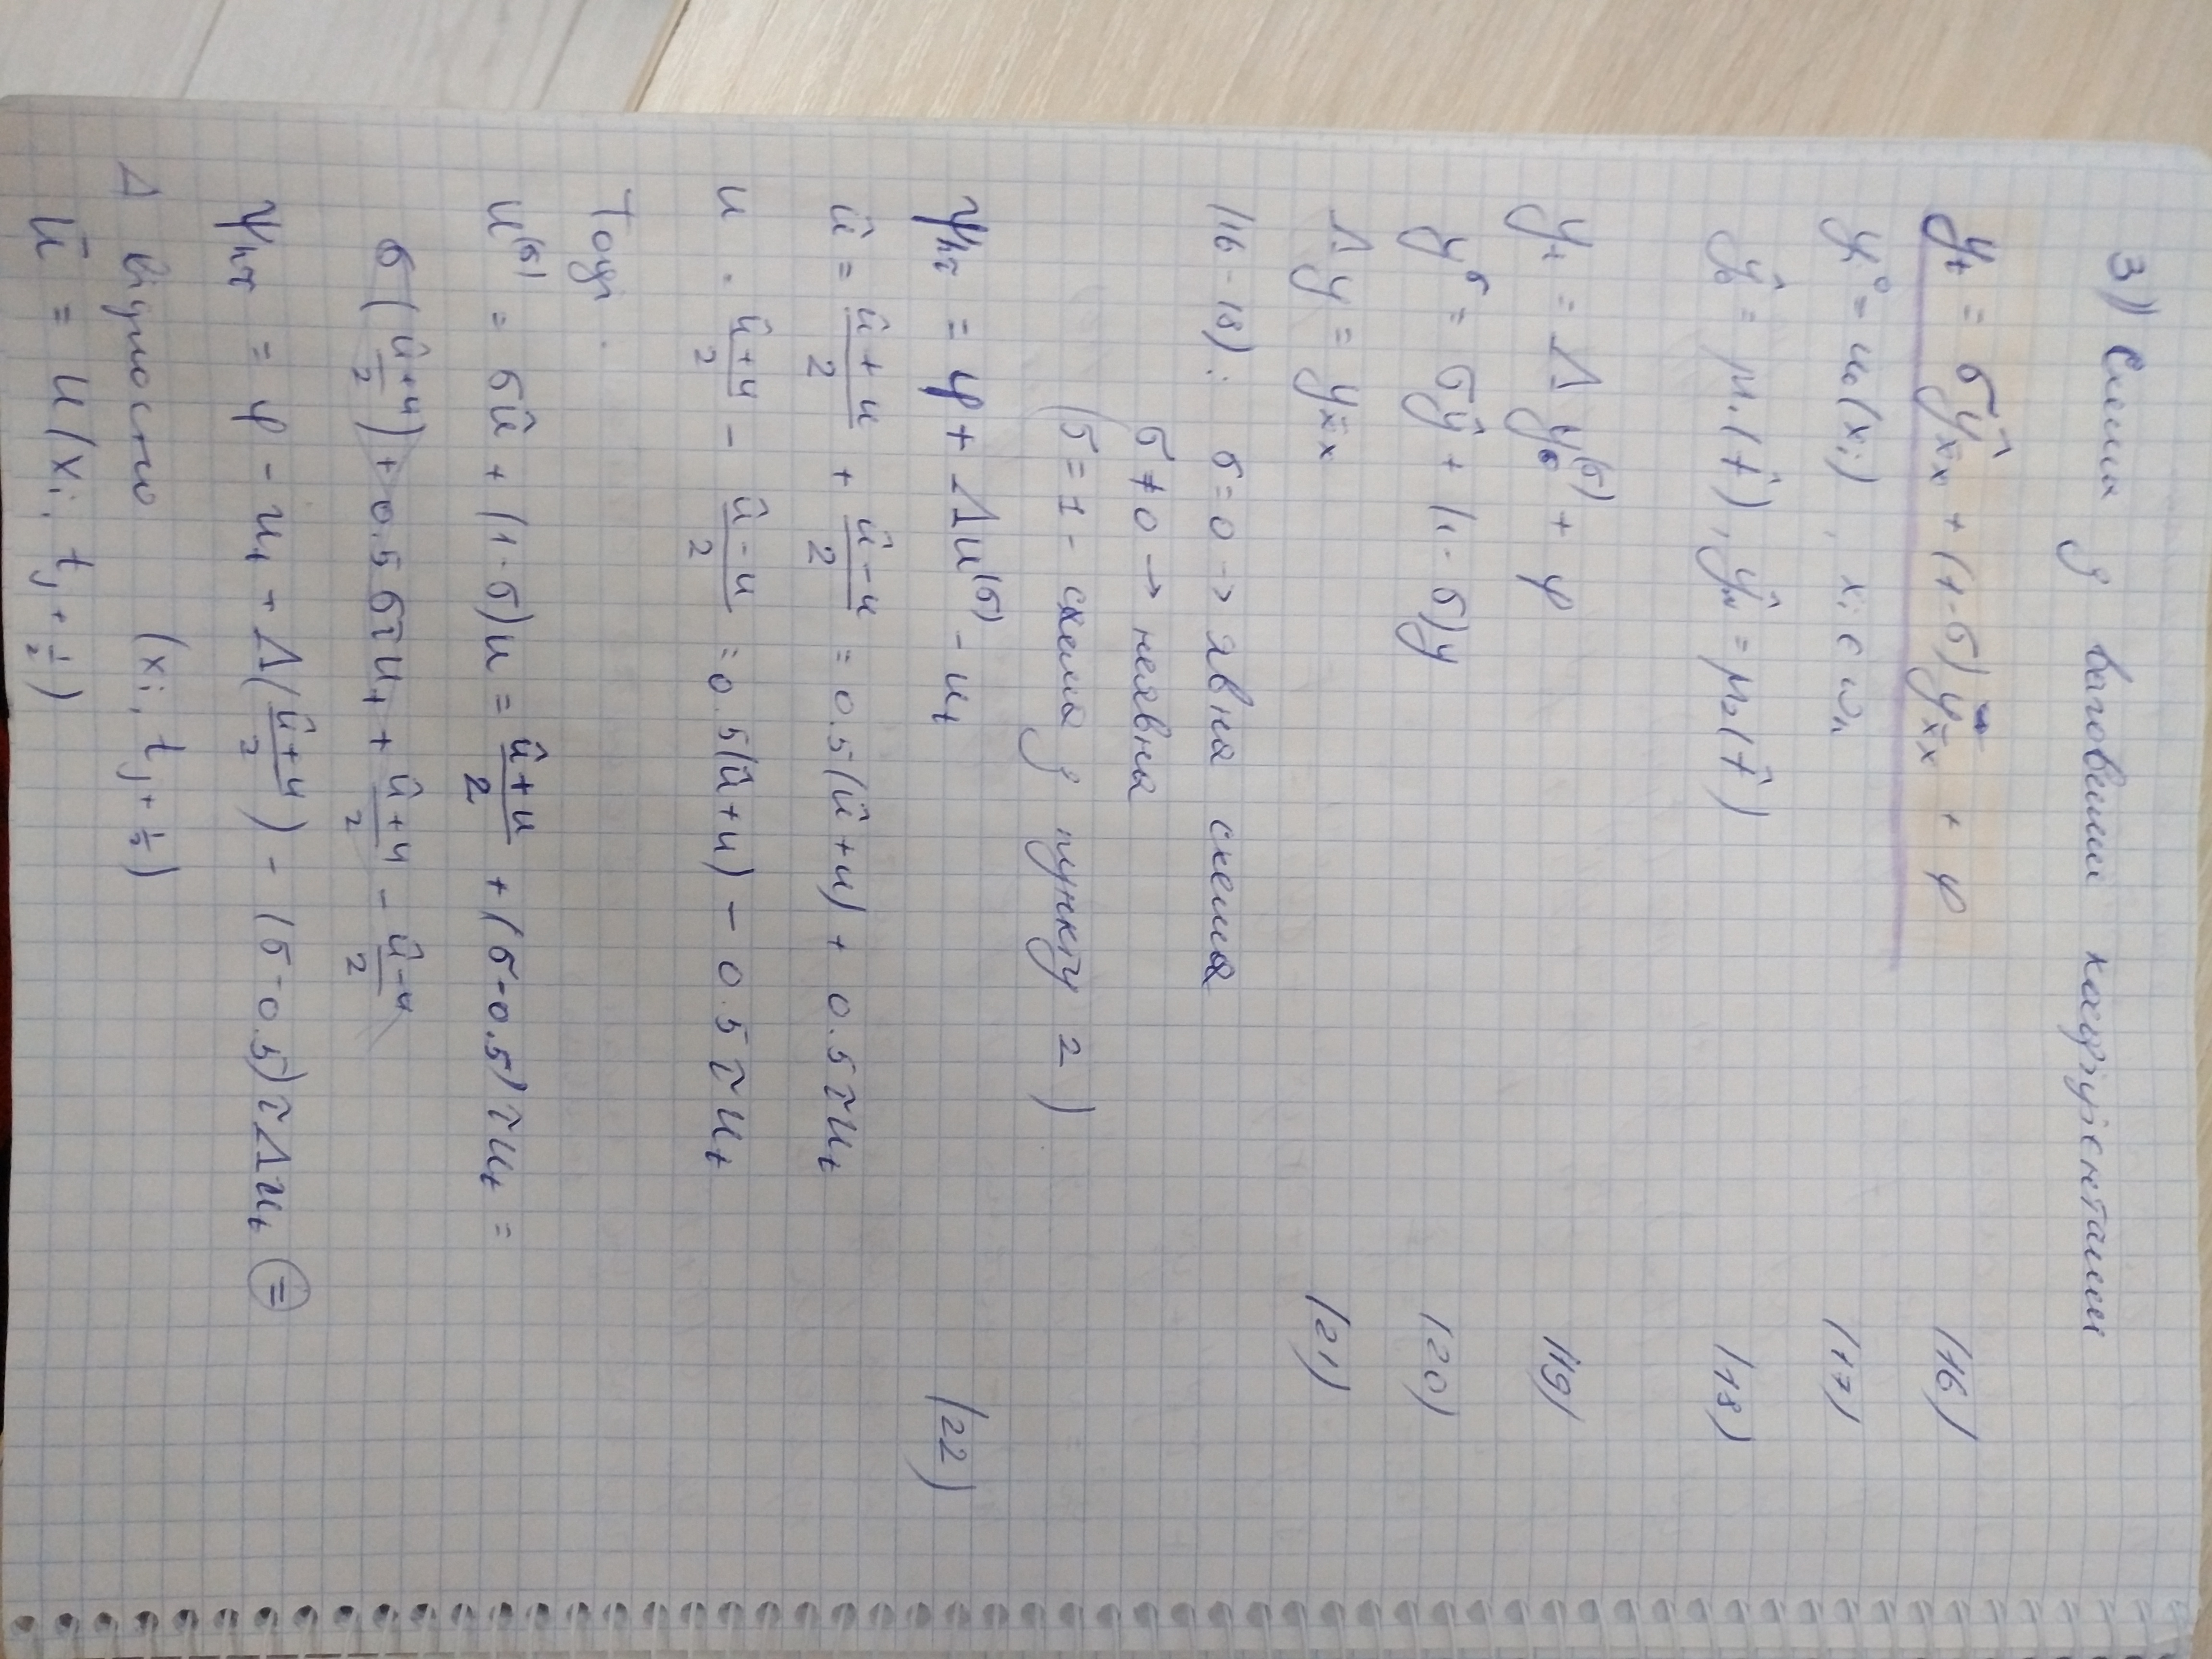 3) Схема з ваговими коефіцієнтами
y_t = σŷ_x̄x + (1-σ)y_x̄x + φ (16)
y_i^0 = u_0(x_i), x_i ∈ ω_h (17)
ŷ_0 = μ_1(t̂), ŷ_N = μ_2(t̂) (18)
y_t = Λy^(σ) + φ (19)
y^σ = σŷ + (1-σ)y (20)
Λy = y_x̄x (21)
(16-18): σ=0 → явна схема
σ≠0 → неявна
(σ=1 - схема з пункту 2)
ψ_hτ = φ + Λu^(σ) - u_t (22)
û = (û+u)/2 + (û-u)/2 = 0.5(û+u) + 0.5τu_t
u = (û+u)/2 - (û-u)/2 = 0.5(û+u) - 0.5τu_t
Тоді
u^(σ) = σû + (1-σ)u = (û+u)/2 + (σ-0.5)τu_t =
σ((û+u)/2) + 0.5στu_t + (û+u)/2 - (û-u)/2
ψ_hτ = φ - u_t + Λ((û+u)/2) - (σ-0.5)τΛu_t =
Δ відносно (x_i, t_j+½)
ū = u(x_i, t_j+½)